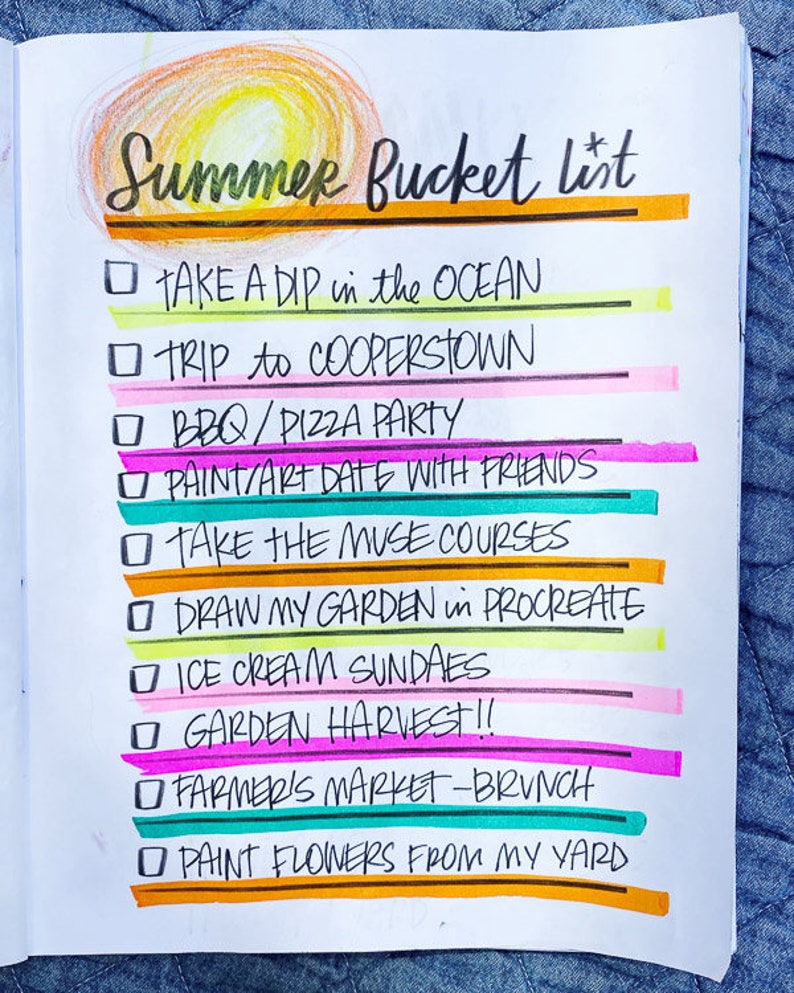 Summer Bucket list
tAKE A DIP in the OCEAN
TRIP to COOPERSTOWN
BBQ / PIZZA PARTY
PAINT/ARt DATE WITH FRIENDS
TAKE THE MUSE COURSES
DRAW MY GARDEN in PROCREATE
ICE CREAM SUNDAES
GARDEN HARVEST!!
FARMER'S MARKET - BRUNCH
PAINT FLOWERS FROM MY YARD